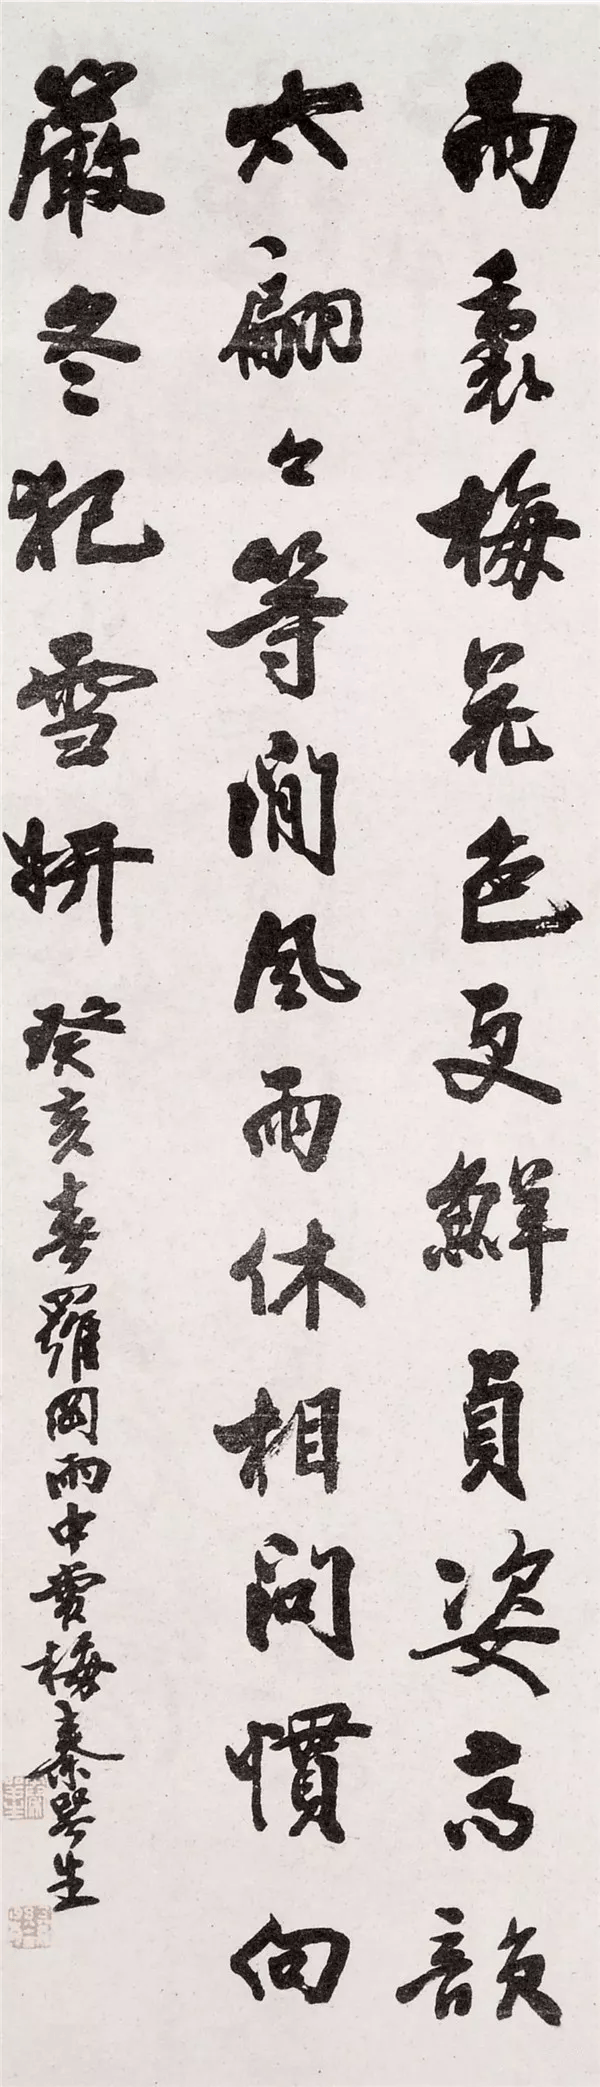 雨裏梅花色更鮮貞姿高韻
太翩々等閒風雨休相問慣向
嚴冬犯雪妍
癸亥春羅岡雨中賞梅秦咢生